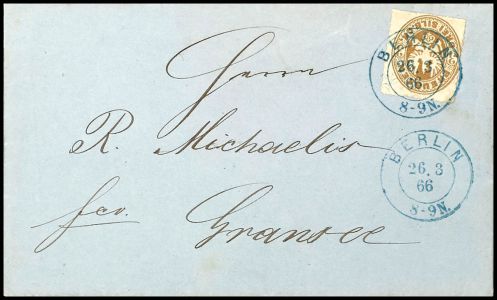 BERLIN
26.3
66
8-9N.
Herrn
R. Michaelis
BERLIN
26.3
66
8-9N.
fco. Gransee